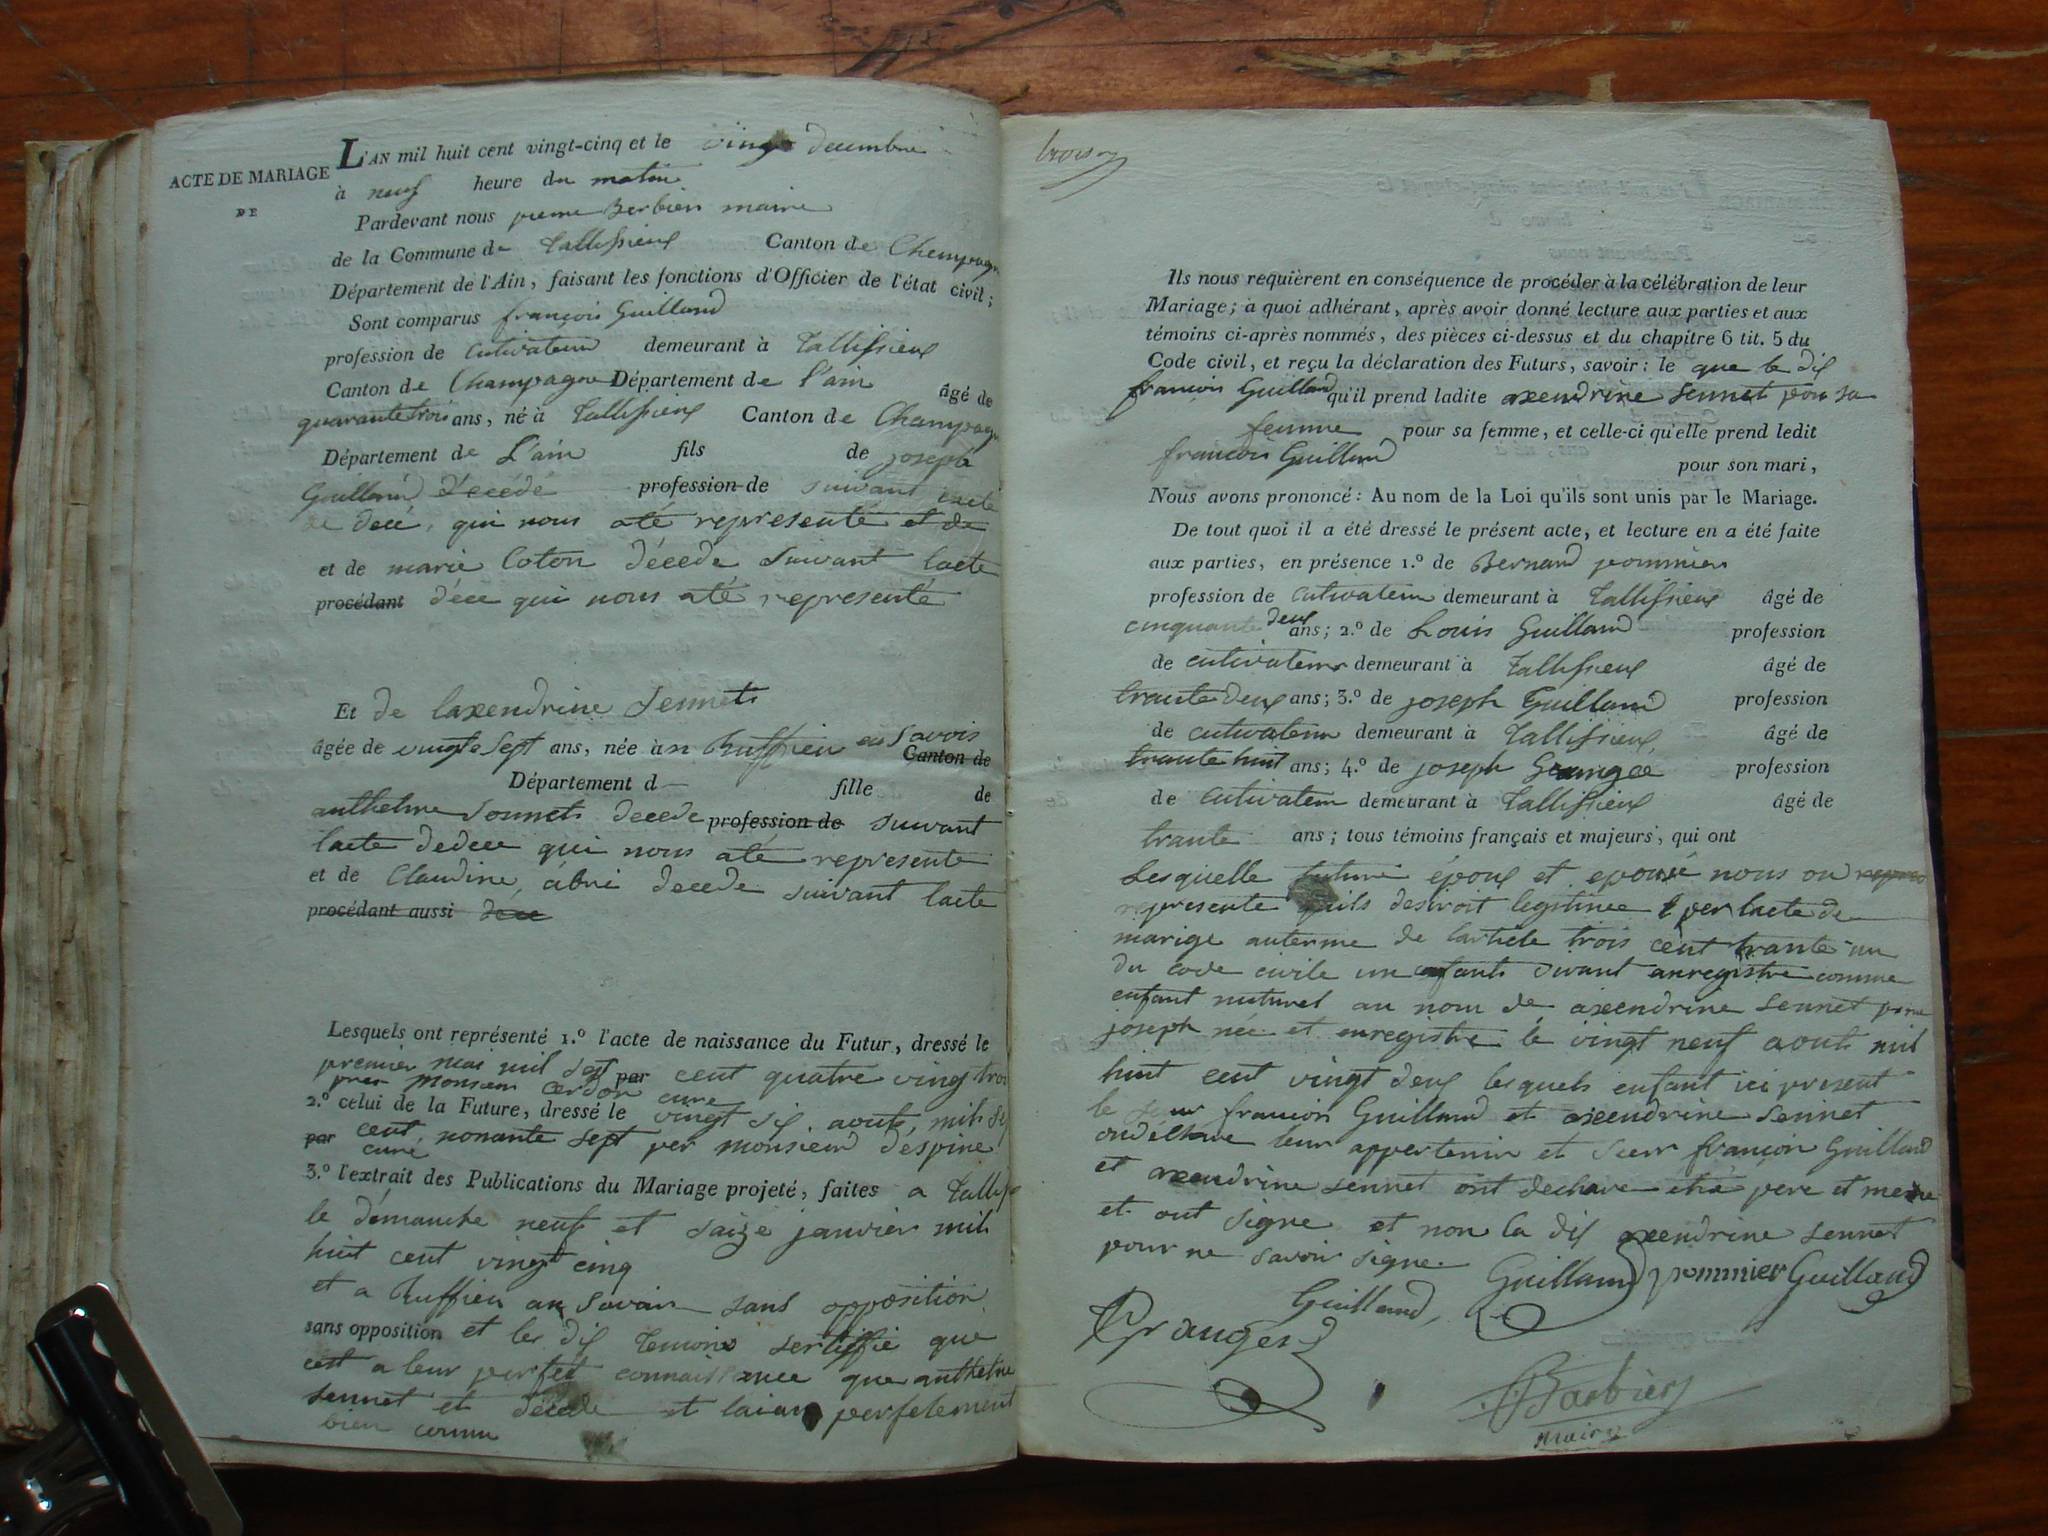 ACTE DE MARIAGE
DE
L'AN mil huit cent vingt-cinq et le vingt decembre
à neuf heure du matin
Pardevant nous pierre Berbier maire
de la Commune de Tallissieux Canton de Champagn
Département de l'Ain, faisant les fonctions d'Officier de l'état civil;
Sont comparus françois Guilland
profession de cutivateur demeurant à Tallissieux
Canton de Champagne Département de l'ain âgé de
quarante trois ans, né à Tallissieux Canton de Champagn
Département de L'ain fils de joseph
Guilland Décédé profession de suivant lacte
de decé, qui nous até representé et de
et de marie Coton décede suivant lacte
procédant déce qui nous até representé
Et de laxendrine Sennet
âgée de vingt Sept ans, née à Ruffieu en Savois Canton de
Département d fille de
anthelme Sonnet decede profession de suivant
lacte dedece qui nous até represente
et de Claudine, abri decede suivant lacte
procédant aussi dece
Lesquels ont représenté 1.º l'acte de naissance du Futur, dressé le
premier mai mil sept par cent quatre vingt trois
par monsieur cerdon cure
2.º celui de la Future, dressé le vingt six aout, mil se
par cent nonante sept per monsieur déspine
curé
3.º l'extrait des Publications du Mariage projeté, faites a Talliss
le démanche neuf et saize janvier mil
huit cent vingt cinq
et a Ruffieu an Savoir sans opposition
sans opposition et les dis temoins sertiffie que
cest a leur parfet connaissance que anthelme
sennet et décede et laian perfetement
bien connu
Ils nous requièrent en conséquence de procéder à la célébration de leur
Mariage; à quoi adhérant, après avoir donné lecture aux parties et aux
témoins ci-après nommés, des pièces ci-dessus et du chapitre 6 tit. 5 du
Code civil, et reçu la déclaration des Futurs, savoir: le que le dis
francois Guilland qu'il prend ladite axendrine Sennet pour sa
femme pour sa femme, et celle-ci qu'elle prend ledit
francois Guilland pour son mari,
Nous avons prononcé: Au nom de la Loi qu'ils sont unis par le Mariage.
De tout quoi il a été dressé le présent acte, et lecture en a été faite
aux parties, en présence 1.º de Bernard pommier
profession de cutivateur demeurant à Tallissieux âgé de
cinquante deux ans; 2.º de Louis Guilland profession
de cutivateur demeurant à Tallissieux âgé de
trante deux ans; 3.º de joseph Guilland profession
de cutivateur demeurant à Tallissieux âgé de
trante huit ans; 4.º de joseph Grangee profession
de cutivateur demeurant à Tallissieux âgé de
trante ans; tous témoins français et majeurs, qui ont
Lesquelle future époux et epouse nous on
represente quils desiroit legitimee per lacte de
marige auterme de larticle trois cent trante un
du code civile un enfant vivant anregistre comme
enfant naturel au nom de axendrine sennet
joseph née et enregistre le vingt neuf aout mil
huit cent vingt deux lesquels enfant ici present
le francoin Guilland et axendrine sennet
leur appertenir et sieur françoin Guilland
et axendrine sennet ont declare père et mere
et ont signe et non la dis axendrine sennet
pour ne savoir signe
Guilland pommier Guilland
Guilland
Granger
Barbier
Maire